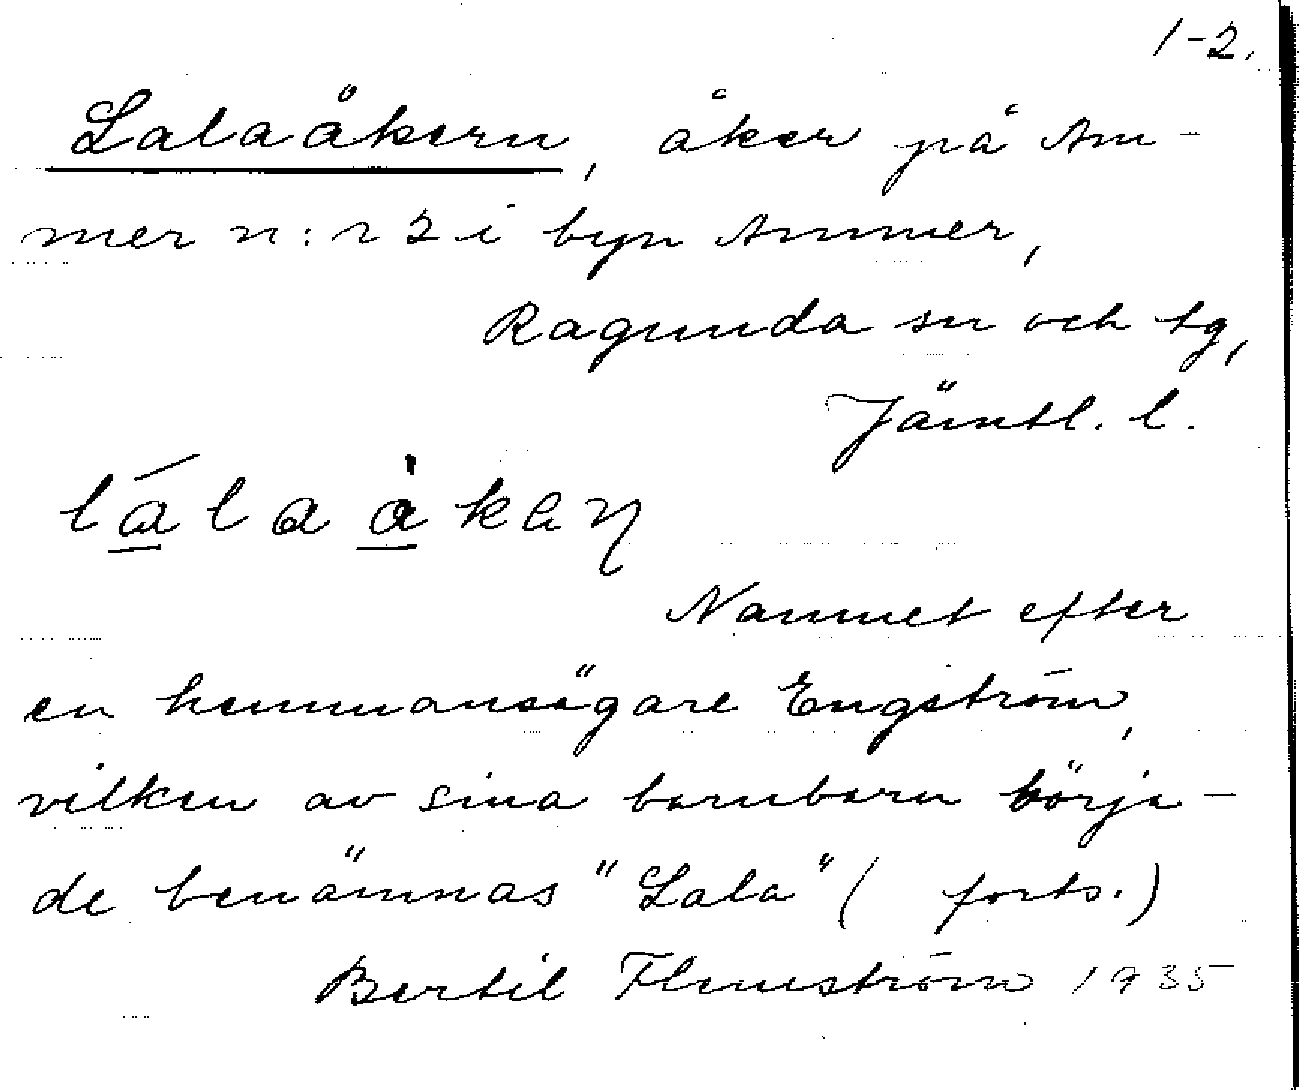 1-2.
Lalaåkern, åker på Am-
mer n:r 2 i byn Ammer,
Ragunda sn och tg,
Jämtl. l.
lālaàkaɳ
Namnet efter
en hemmansägare Engström,
vilken av sina barnbarn börja-
de benämnas "Lala" (forts.)
Bertil Flemström 1935